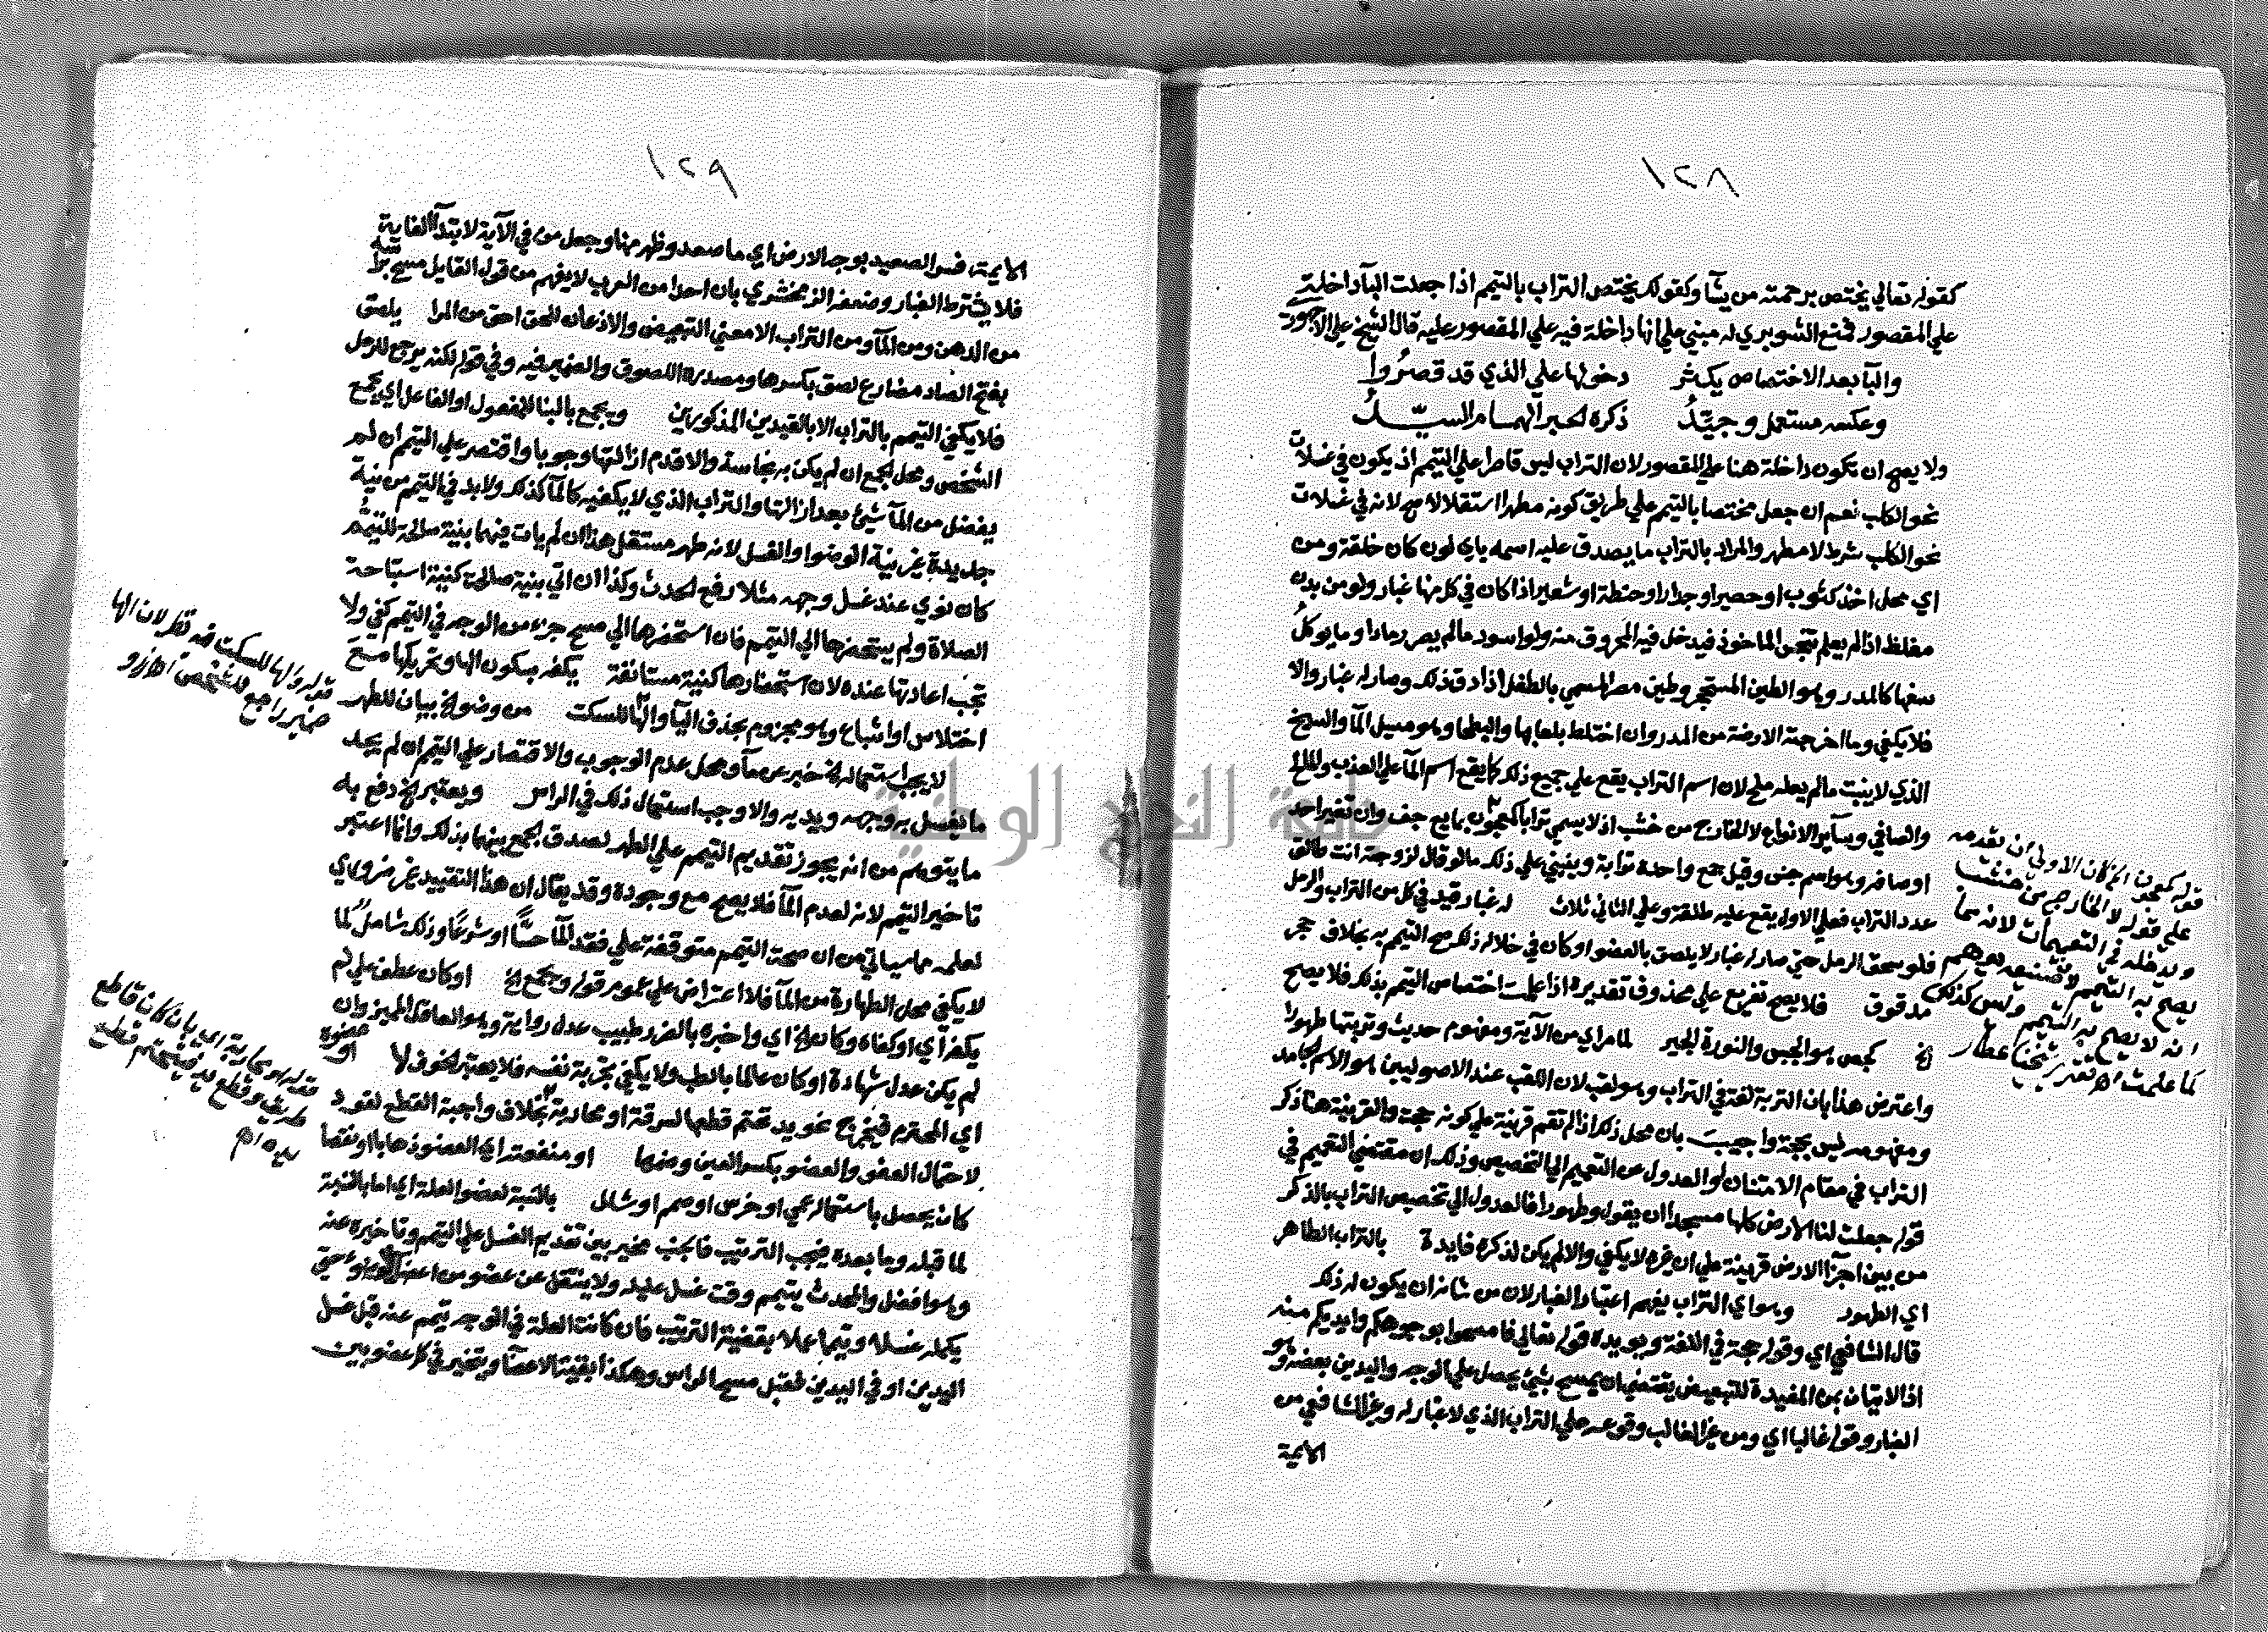 ١٢٨
كقوله تعالي يختص برحمته من يشا وكقولك يختص التراب بالتيمم اذا جعلت الباء داخلة
علي المقصور فمنع الشوبري له مبني علي انها داخلة فيه علي المقصور عليه قال الشيخ علي الاجهوري
والبا بعد الاختصاص يكثر دخولها علي الذي قد قصروا
وعكسه مستعمل وجيّدُ ذكره الحبر الهمام السيّدُ
ولا يصح ان تكون داخلة هنا علي المقصور لان التراب ليس قاصرا علي التيمم اذ يكون في غسلات
نحو الكلب نعم ان جعل مختصا بالتيمم علي طريق كونه مطهرا استقلالا صح لانه في غسلات
نحو الكلب شرط لا مطهر والمراد بالتراب ما يصدق عليه اسمه باي لون كان خلقة ومن
اي محل اخذ كثوب او حصير او جدار او حنطة او شعير اذا كان في كل منها غبار ولو من بدن
مغلظ اذا لم يعلم تنجس الماخوذ فيدخل فيه المحروق منه ولو اسود ما لم يصر رمادا وما يوكل
سفها كالمدر وهو الطين المستحجر وطين مصر المسمي بالطفل اذا دق ذلك وصار له غبار والا
فلا يكفي وما اخرجته الارضة من المدر وان اختلط بلعابها والبطحا وهو مسيل الما والسبخ
الذي لا ينبت ما لم يعله ملح لان اسم التراب يقع علي جميع ذلك كما يقع اسم الما علي العذب والمالح
والصافي وساير الانواع لا الخارج من خشب اذ لا يسمي ترابا كمعجون بمايع جف وان تغير احد
اوصافه وهو اسم جنس وقيل جمع واحده ترابة وينبني علي ذلك ما لو قال لزوجته انت طالق
عدد التراب فعلي الاول يقع عليه طلقة وعلي الثاني ثلاث له غبار قيد في كل من التراب والرمل
فلو سحق الرمل حتي صار له غبار لا يلصق بالعضو او كان في خلاله ذلك صح التيمم به بخلاف حجر
مدقوق فلا يصح تفريع علي محذوف تقديره اذا علمت اختصاص التيمم بذلك فلا يصح
الخ كجص هو الجبس والنورة الجير لما مر اي من الاية ومفهوم حديث وتربتها طهورا
واعترض هذا بان التربة لغة في التراب وهو لقب لان اللقب عند الاصوليين هو الاسم الجامد
ومفهومه ليس بحجة واجيب بان محل ذلك اذا لم تقم قرينة علي كونه حجة والقرينة هنا ذكر
التراب في مقام الامتنان والعدول عن التعميم الي التخصيص وذلك ان مقتضي التعميم في
قوله جعلت لنا الارض كلها مسجدا ان يقول وطهورا فالعدول الي تخصيص التراب بالذكر
من بين اجزا الارض قرينة علي ان غيره لا يكفي والا لم يكن لذكره فايدة بالتراب الطاهر
اي الطهور وهو اي التراب يفهم اعتبار الغبار لان من شانه ان يكون له ذلك
قال الشافعي اي وقوله حجة في اللغة ويويده قوله تعالي فامسحوا بوجوهكم وايديكم منه
اذ الاتيان بمن المفيدة للتبعيض يقتضي ان يمسح بشيئ يحصل علي الوجه واليدين بعضه وهو
الغبار وقوله غالبا اي ومن غير الغالب وقوعه علي التراب الذي لا غبار له وغير الشافعي من
الايمة
قوله كمعجون الخ كان الاولي ان تقدمه
علي قوله لا الخارج من خشب
ويدخله في التعميمات لانه مما
يصح به التيمم وصنيعه يوهم
انه لا يصح به التيمم وليس كذلك
كما علمت اه تقرير شيخنا عطار
١٢٩
الايمة فسر الصعيد بوجه الارض اي ما صعد وظهر منها وجعل من في الاية لابتداء الغاية
فلا يشترط الغبار وضعفه الزمخشري بان احدا من العرب لا يفهم من قول القايل مسح براسه
من الدهن ومن الما ومن التراب الا معني التبعيض والاذعان للحق احق من المرا يلصق
بفتح الصاد مضارع لصق بكسرها ومصدره اللصوق والضمير فيه وفي قوله لكنه يرجع للرمل
فلا يكفي التيمم بالتراب الا بالقيدين المذكورين ويجمع بالبنا للمفعول او الفاعل اي يجمع
الشخص ومحل الجمع ان لم يكن به نجاسة والا قدم ازالتها وجوبا واقتصر علي التيمم ان لم
يفضل من الما شيئ بعد ازالتها والتراب الذي لا يكفيه كالما كذلك ولا بد في التيمم من نية
جديدة غير نية الوضوا والغسل لانه طهر مستقل هذا ان لم يات فيهما بنية صالحة للتيمم
كان نوي عند غسل وجهه مثلا رفع الحدث وكذا ان اتي بنية صالحة كنية استباحة
الصلاة ولم يستحضرها الي التيمم فان استحضرها الي مسح جزء من الوجه في التيمم كفي ولا
تجب اعادتها عنده لان استحضارها كنية مستانفة يكفه بسكون الها وتحريكها مع
اختلاس او اشباع وهو مجزوم بحذف اليا والها للسكت من وضو الخ بيان للطهر
لا يجب استعماله الخ خبر عن ما ومحل عدم الوجوب والاقتصار علي التيمم ان لم يجد
ما يغسل به وجهه ويديه والا وجب استعمال ذلك في الراس ويعتبر الخ دفع به
ما يتوهم من انه يجوز تقديم التيمم علي الطهر لصدق الجمع بينهما بذلك وانما اعتبر
تاخير التيمم لانه لعدم الما فلا يصح مع وجوده وقد يقال ان هذا التقييد غير ضروري
لعلمه مما سياتي من ان صحة التيمم متوقفة علي فقد الما حسًّا او شرعًا وذلك شامل لما
لا يكفي محل الطهارة من الما فلا اعتراض علي عموم قوله ويجمع الخ او كان عطف علي لم
يكفه اي او كفاه وكان الخ اي واخبره بالضرر طبيب عدل رواية وهو العاقل المميز وان
لم يكن عدل شهادة او كان عالما بالطب ولا يكفي تجربة نفسه فلا يعتبر الخوف لا عضوه او
اي المحترم فيخرج نحو يد تحتم قطعها لسرقة او محاربة بخلاف واجبة القطع لقود
لاحتمال العفو والعضو بكسر العين وضمها او منفعته اي العضو ذهابا او نقصا
كان يحصل باستعماله عمي او خرس او صمم او شلل بالنسبة لعضو العلة اي اما بالنسبة
لما قبله وما بعده فيجب الترتيب فالجنب مخير بين تقديم الغسل علي التيمم وتاخيره عنه
وهو افضل والمحدث يتيمم وقت غسل عليله ولا ينتقل عن عضو من اعضاء الوضو حتي
يكمله غسلا وتيمما عملا بقضية الترتيب فان كانت العلة في الوجه تيمم عنه قبل غسل
اليدين او في اليدين فقبل مسح الراس وهكذا بقية الاعضا ويتخير في كل عضو بين
قوله والها للسكت فيه نظر لان الها
ضمير راجع للشخص اه
قوله او محاربة اي بان كان قاطع
طريق وقطع يد فيتحتم قطع
يده اه